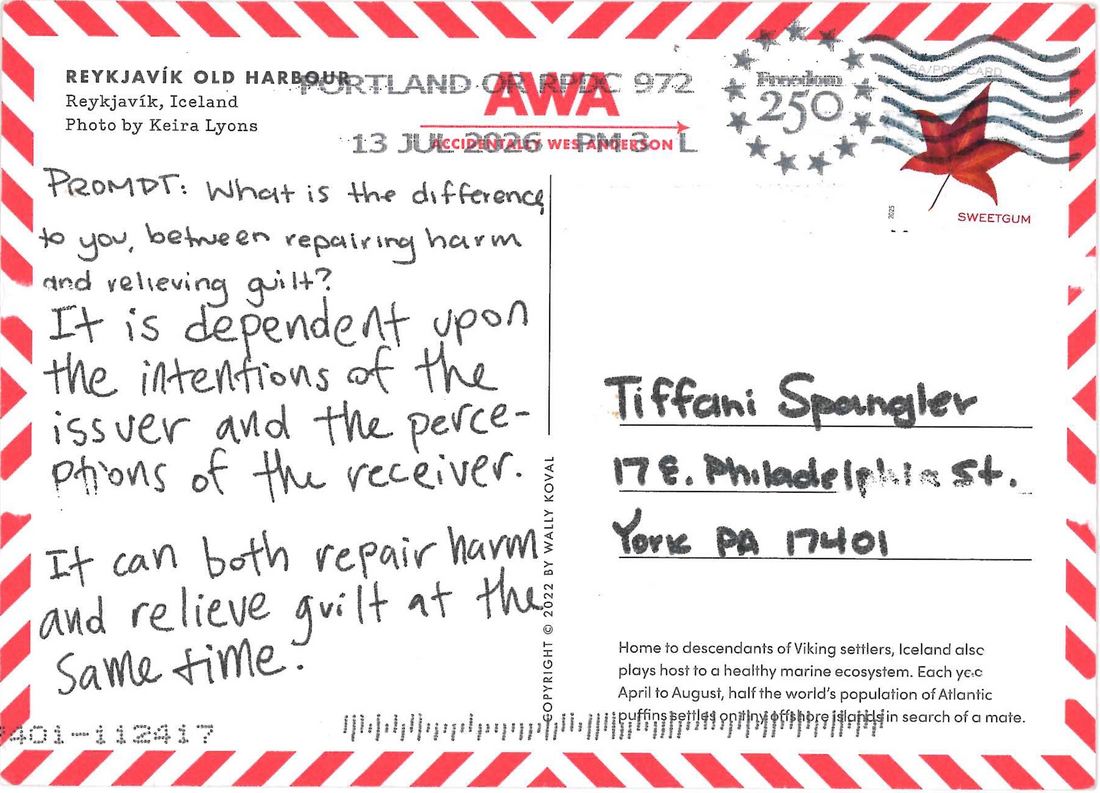 REYKJAVÍK OLD HARBOUR
Reykjavík, Iceland
Photo by Keira Lyons
PORTLAND OR RPDC 972
13 JUL 2026 PM 3 L
AWA
ACCIDENTALLY WES ANDERSON
Freedom
250
USA/POSTCARD
2025
SWEETGUM
PROMPT: What is the difference,
to you, between repairing harm
and relieving guilt?
It is dependent upon
the intentions of the
issuer and the perce-
ptions of the receiver.
It can both repair harm
and relieve guilt at the
same time.
COPYRIGHT © 2022 BY WALLY KOVAL
Tiffani Spangler
17 E. Philadelphia St.
York PA 17401
Home to descendants of Viking settlers, Iceland also
plays host to a healthy marine ecosystem. Each year
April to August, half the world's population of Atlantic
puffins settles on tiny offshore islands in search of a mate.
7401-112417